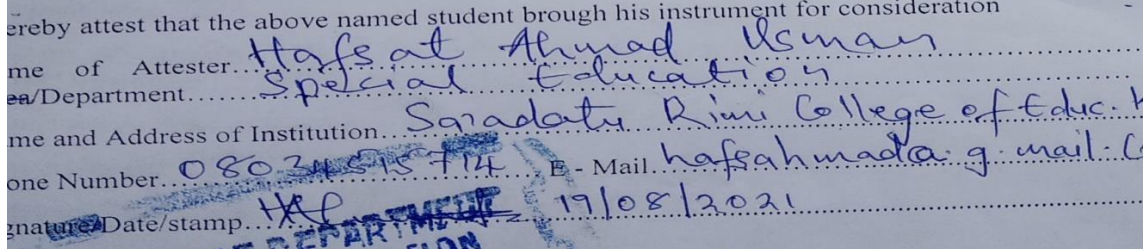 ereby attest that the above named student brough his instrument for consideration
me of Attester... Hafsat Ahmad Usman
ea/Department... Special Education
me and Address of Institution... Saadatu Rimi College of Educ.
one Number... 08034515714 E - Mail... hafsahmad@g.mail.C
gnature/Date/stamp... 19/08/2021
DEPARTMENT
ION